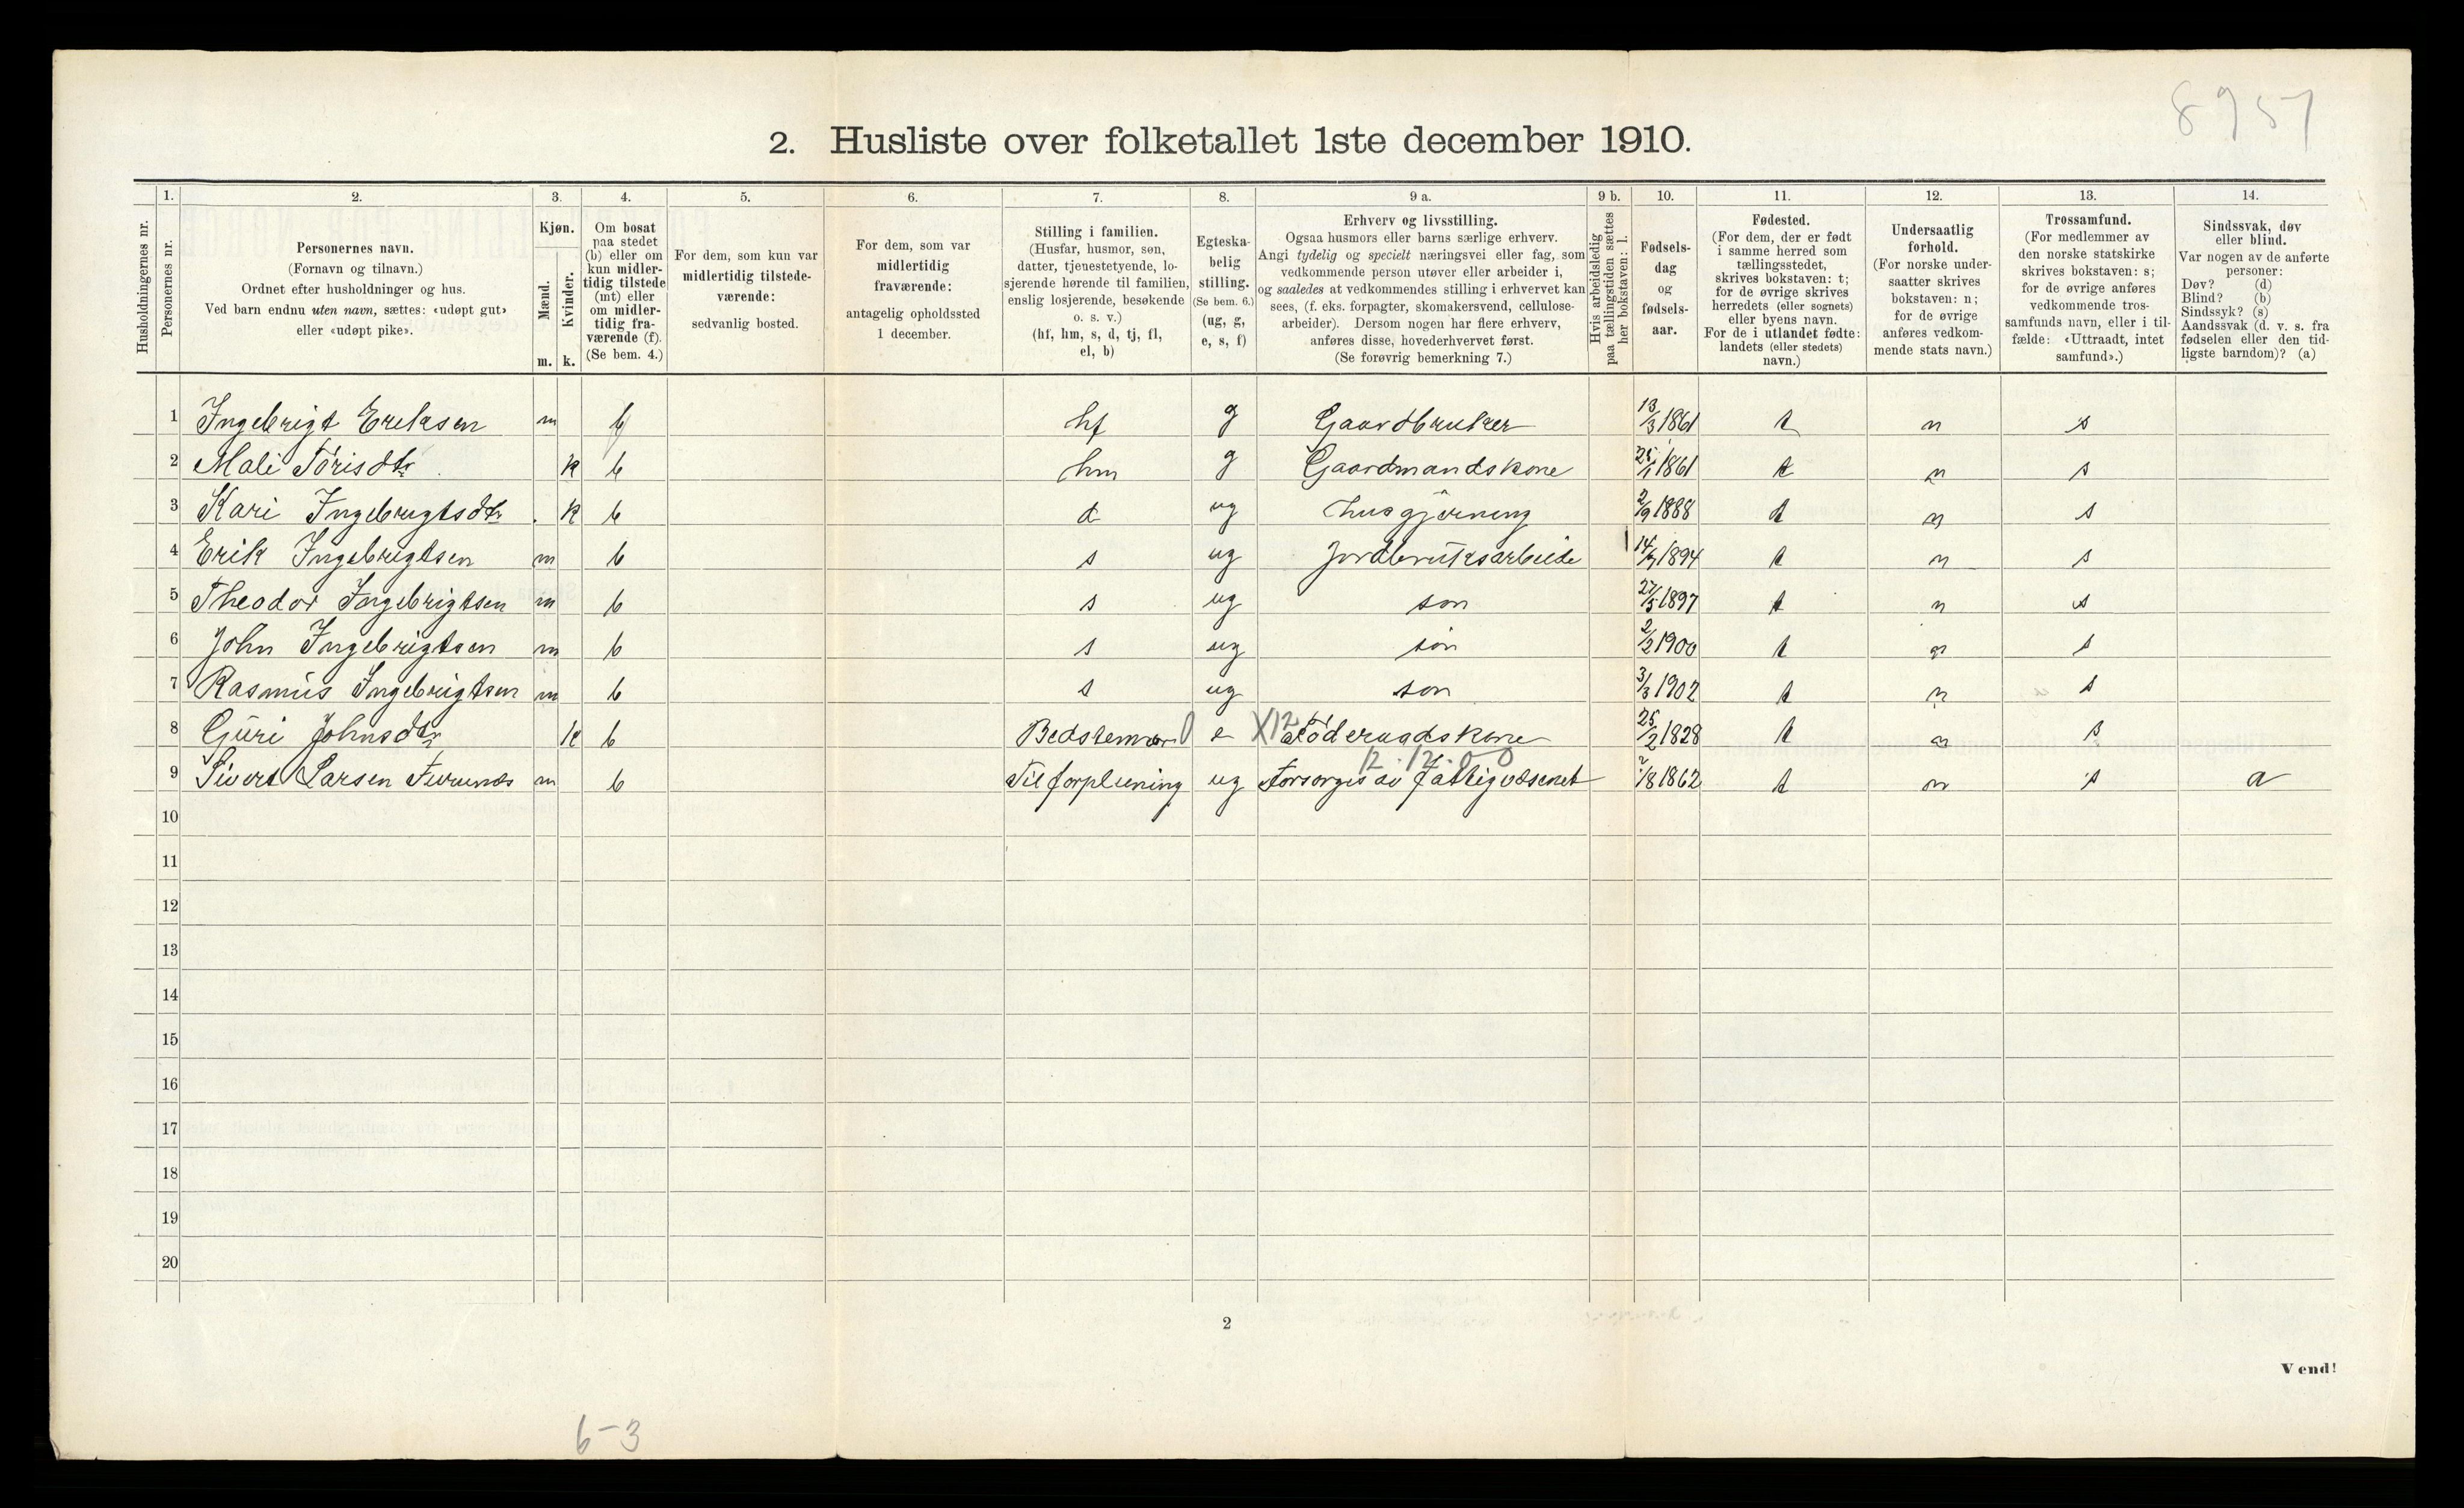 8957
2. Husliste over folketallet 1ste december 1910.
Husholdningernes nr.
1.
Personernes nr.
2.
Personernes navn.
(Fornavn og tilnavn.)
Ordnet efter husholdninger og hus.
Ved barn endnu uten navn, sættes: «udøpt gut»
eller «udøpt pike».
3.
Kjøn.
Mænd.
m.
Kvinder.
k.
4.
Om bosat
paa stedet
(b) eller om
kun midler-
tidig tilstede
(mt) eller
om midler-
tidig fra-
værende (f).
(Se bem. 4.)
5.
For dem, som kun var
midlertidig tilstede-
værende:
sedvanlig bosted.
6.
For dem, som var
midlertidig
fraværende:
antagelig opholdssted
1 december.
7.
Stilling i familien.
(Husfar, husmor, søn,
datter, tjenestetyende, lo-
sjerende hørende til familien,
enslig losjerende, besøkende
o. s. v.)
(hf, hm, s, d, tj, fl,
el, b)
8.
Egteska-
belig
stilling.
(Se bem. 6.)
(ug, g,
e, s, f)
9 a.
Erhverv og livsstilling.
Ogsaa husmors eller barns særlige erhverv.
Angi tydelig og specielt næringsvei eller fag, som
vedkommende person utøver eller arbeider i,
og saaledes at vedkommendes stilling i erhvervet kan
sees, (f. eks. forpagter, skomakersvend, cellulose-
arbeider). Dersom nogen har flere erhverv,
anføres disse, hovederhvervet først.
(Se forøvrig bemerkning 7.)
9 b.
Hvis arbeidsledig
paa tællingstiden sættes
her bokstaven: l.
10.
Fødsels-
dag
og
fødsels-
aar.
11.
Fødested.
(For dem, der er født
i samme herred som
tællingsstedet,
skrives bokstaven: t;
for de øvrige skrives
herredets (eller sognets)
eller byens navn.
For de i utlandet fødte:
landets (eller stedets)
navn.)
12.
Undersaatlig
forhold.
(For norske under-
saatter skrives
bokstaven: n;
for de øvrige
anføres vedkom-
mende stats navn.)
13.
Trossamfund.
(For medlemmer av
den norske statskirke
skrives bokstaven: s;
for de øvrige anføres
vedkommende tros-
samfunds navn, eller i til-
fælde: «Uttraadt, intet
samfund».)
14.
Sindssvak, døv
eller blind.
Var nogen av de anførte
personer:
Døv? (d)
Blind? (b)
Sindssyk? (s)
Aandssvak (d. v. s. fra
fødselen eller den tid-
ligste barndom)? (a)
1 Ingebrigt Eriksen m b hf g Gaardbruker 13/3 1861 t n s
2 Mali Torisdtr k b hm g Gaardmandskone 25/1 1861 t n s
3 Kari Ingebrigtsdtr k b d ug husgjerning 2/9 1888 t n s
4 Erik Ingebrigtsen m b s ug Jordbruksarbeide 1894 t n s
5 Theodor Ingebrigtsen m b s ug søn 27/5 1897 t n s
6 John Ingebrigtsen m b s ug søn 2/2 1900 t n s
7 Rasmus Ingebrigtsen m b s ug søn 3/3 1902 t n s
8 Guri Johnsdtr k b Bedstemor 0 e X12 Føderaadskone 25/2 1828 t n s
12.12.0-0
9 Sivert Larsen m b Til forpleining ug Forsørges av Fattigvæsenet /8 1862 t n s a
10
11
12
13
14
15
16
17
18
19
20
2
Vend!
6-3